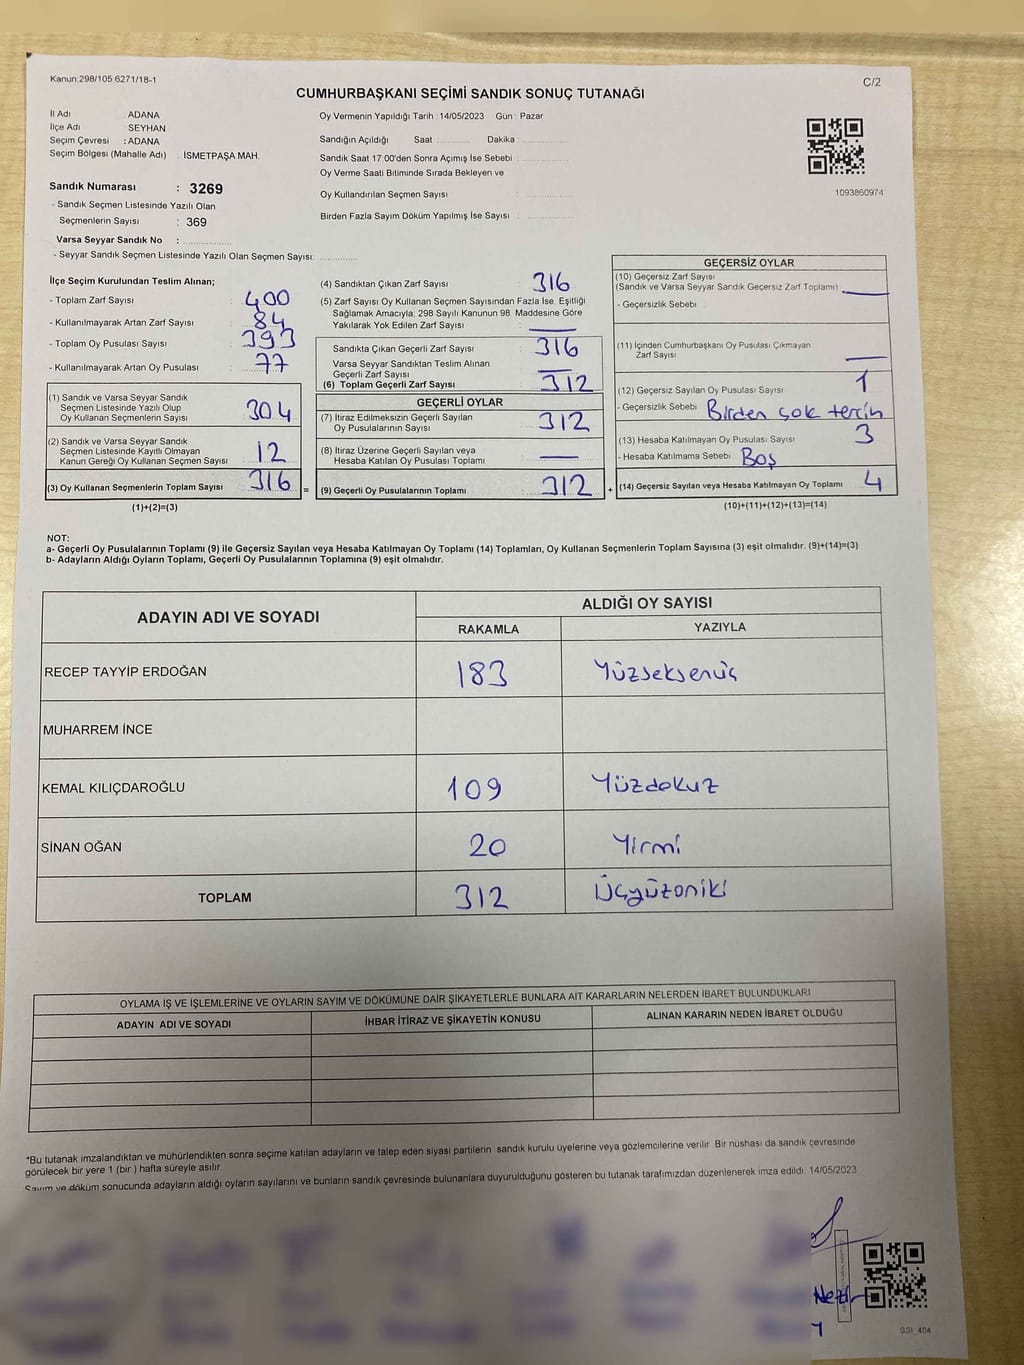 Kanun:298/105,6271/18-1
C/2
CUMHURBAŞKANI SEÇİMİ SANDIK SONUÇ TUTANAĞI
İl Adı : ADANA
İlçe Adı : SEYHAN
Seçim Çevresi : ADANA
Seçim Bölgesi (Mahalle Adı) : İSMETPAŞA MAH.
Sandık Numarası : 3269
- Sandık Seçmen Listesinde Yazılı Olan
Seçmenlerin Sayısı : 369
Varsa Seyyar Sandık No :
- Seyyar Sandık Seçmen Listesinde Yazılı Olan Seçmen Sayısı:
Oy Vermenin Yapıldığı Tarih : 14/05/2023 Gün : Pazar
Sandığın Açıldığı Saat : Dakika :
Sandık Saat 17:00'den Sonra Açımış İse Sebebi :
Oy Verme Saati Bitiminde Sırada Bekleyen ve
Oy Kullandırılan Seçmen Sayısı :
Birden Fazla Sayım Döküm Yapılmış İse Sayısı :
1093860974
İlçe Seçim Kurulundan Teslim Alınan;
- Toplam Zarf Sayısı : 400
- Kullanılmayarak Artan Zarf Sayısı : 84
- Toplam Oy Pusulası Sayısı : 393
- Kullanılmayarak Artan Oy Pusulası : 77
(1) Sandık ve Varsa Seyyar Sandık
Seçmen Listesinde Yazılı Olup
Oy Kullanan Seçmen Sayısı : 304
(2) Sandık ve Varsa Seyyar Sandık
Seçmen Listesinde Kayıtlı Olmayan
Kanun Gereği Oy Kullanan Seçmen Sayısı : 12
(3) Oy Kullanan Seçmenlerin Toplam Sayısı : 316
(1)+(2)=(3)
(4) Sandıktan Çıkan Zarf Sayısı : 316
(5) Zarf Sayısı Oy Kullanan Seçmen Sayısından Fazla İse, Eşitliği
Sağlamak Amacıyla; 298 Sayılı Kanunun 98. Maddesine Göre
Yakılarak Yok Edilen Zarf Sayısı : —
Sandıkta Çıkan Geçerli Zarf Sayısı : 316
Varsa Seyyar Sandıktan Teslim Alınan
Geçerli Zarf Sayısı : —
(6) Toplam Geçerli Zarf Sayısı : 312
GEÇERLİ OYLAR
(7) İtiraz Edilmeksizin Geçerli Sayılan
Oy Pusulalarının Sayısı : 312
(8) İtiraz Üzerine Geçerli Sayılan veya
Hesaba Katılan Oy Pusulası Toplamı : —
= (9) Geçerli Oy Pusulalarının Toplamı : 312 +
GEÇERSİZ OYLAR
(10) Geçersiz Zarf Sayısı
(Sandık ve Varsa Seyyar Sandık Geçersiz Zarf Toplamı) : —
- Geçersizlik Sebebi :
(11) İçinden Cumhurbaşkanı Oy Pusulası Çıkmayan
Zarf Sayısı : —
(12) Geçersiz Sayılan Oy Pusulası Sayısı : 1
- Geçersizlik Sebebi : Birden çok tercih
(13) Hesaba Katılmayan Oy Pusulası Sayısı : 3
- Hesaba Katılmama Sebebi : Boş
(14) Geçersiz Sayılan veya Hesaba Katılmayan Oy Toplamı : 4
(10)+(11)+(12)+(13)=(14)
NOT:
a- Geçerli Oy Pusulalarının Toplamı (9) ile Geçersiz Sayılan veya Hesaba Katılmayan Oy Toplamı (14) Toplamları, Oy Kullanan Seçmenlerin Toplam Sayısına (3) eşit olmalıdır. (9)+(14)=(3)
b- Adayların Aldığı Oyların Toplamı, Geçerli Oy Pusulalarının Toplamına (9) eşit olmalıdır.
ADAYIN ADI VE SOYADI
ALDIĞI OY SAYISI
RAKAMLA YAZIYLA
RECEP TAYYİP ERDOĞAN 183 Yüzseksenüç
MUHARREM İNCE
KEMAL KILIÇDAROĞLU 109 Yüzdokuz
SİNAN OĞAN 20 Yirmi
TOPLAM 312 Üçyüzoniki
OYLAMA İŞ VE İŞLEMLERİNE VE OYLARIN SAYIM VE DÖKÜMÜNE DAİR ŞİKAYETLERLE BUNLARA AİT KARARLARIN NELERDEN İBARET BULUNDUKLARI
ADAYIN ADI VE SOYADI İHBAR İTİRAZ VE ŞİKAYETİN KONUSU ALINAN KARARIN NEDEN İBARET OLDUĞU
*Bu tutanak imzalandıktan ve mühürlendikten sonra seçime katılan adayların ve talep eden siyasi partilerin sandık kurulu üyelerine veya gözlemcilerine verilir. Bir nüshası da sandık çevresinde
görülecek bir yere 1 (bir ) hafta süreyle asılır.
Sayım ve döküm sonucunda adayların aldığı oyların sayılarını ve bunların sandık çevresinde bulunanlara duyurulduğunu gösteren bu tutanak tarafımızdan düzenlenerek imza edildi. 14/05/2023